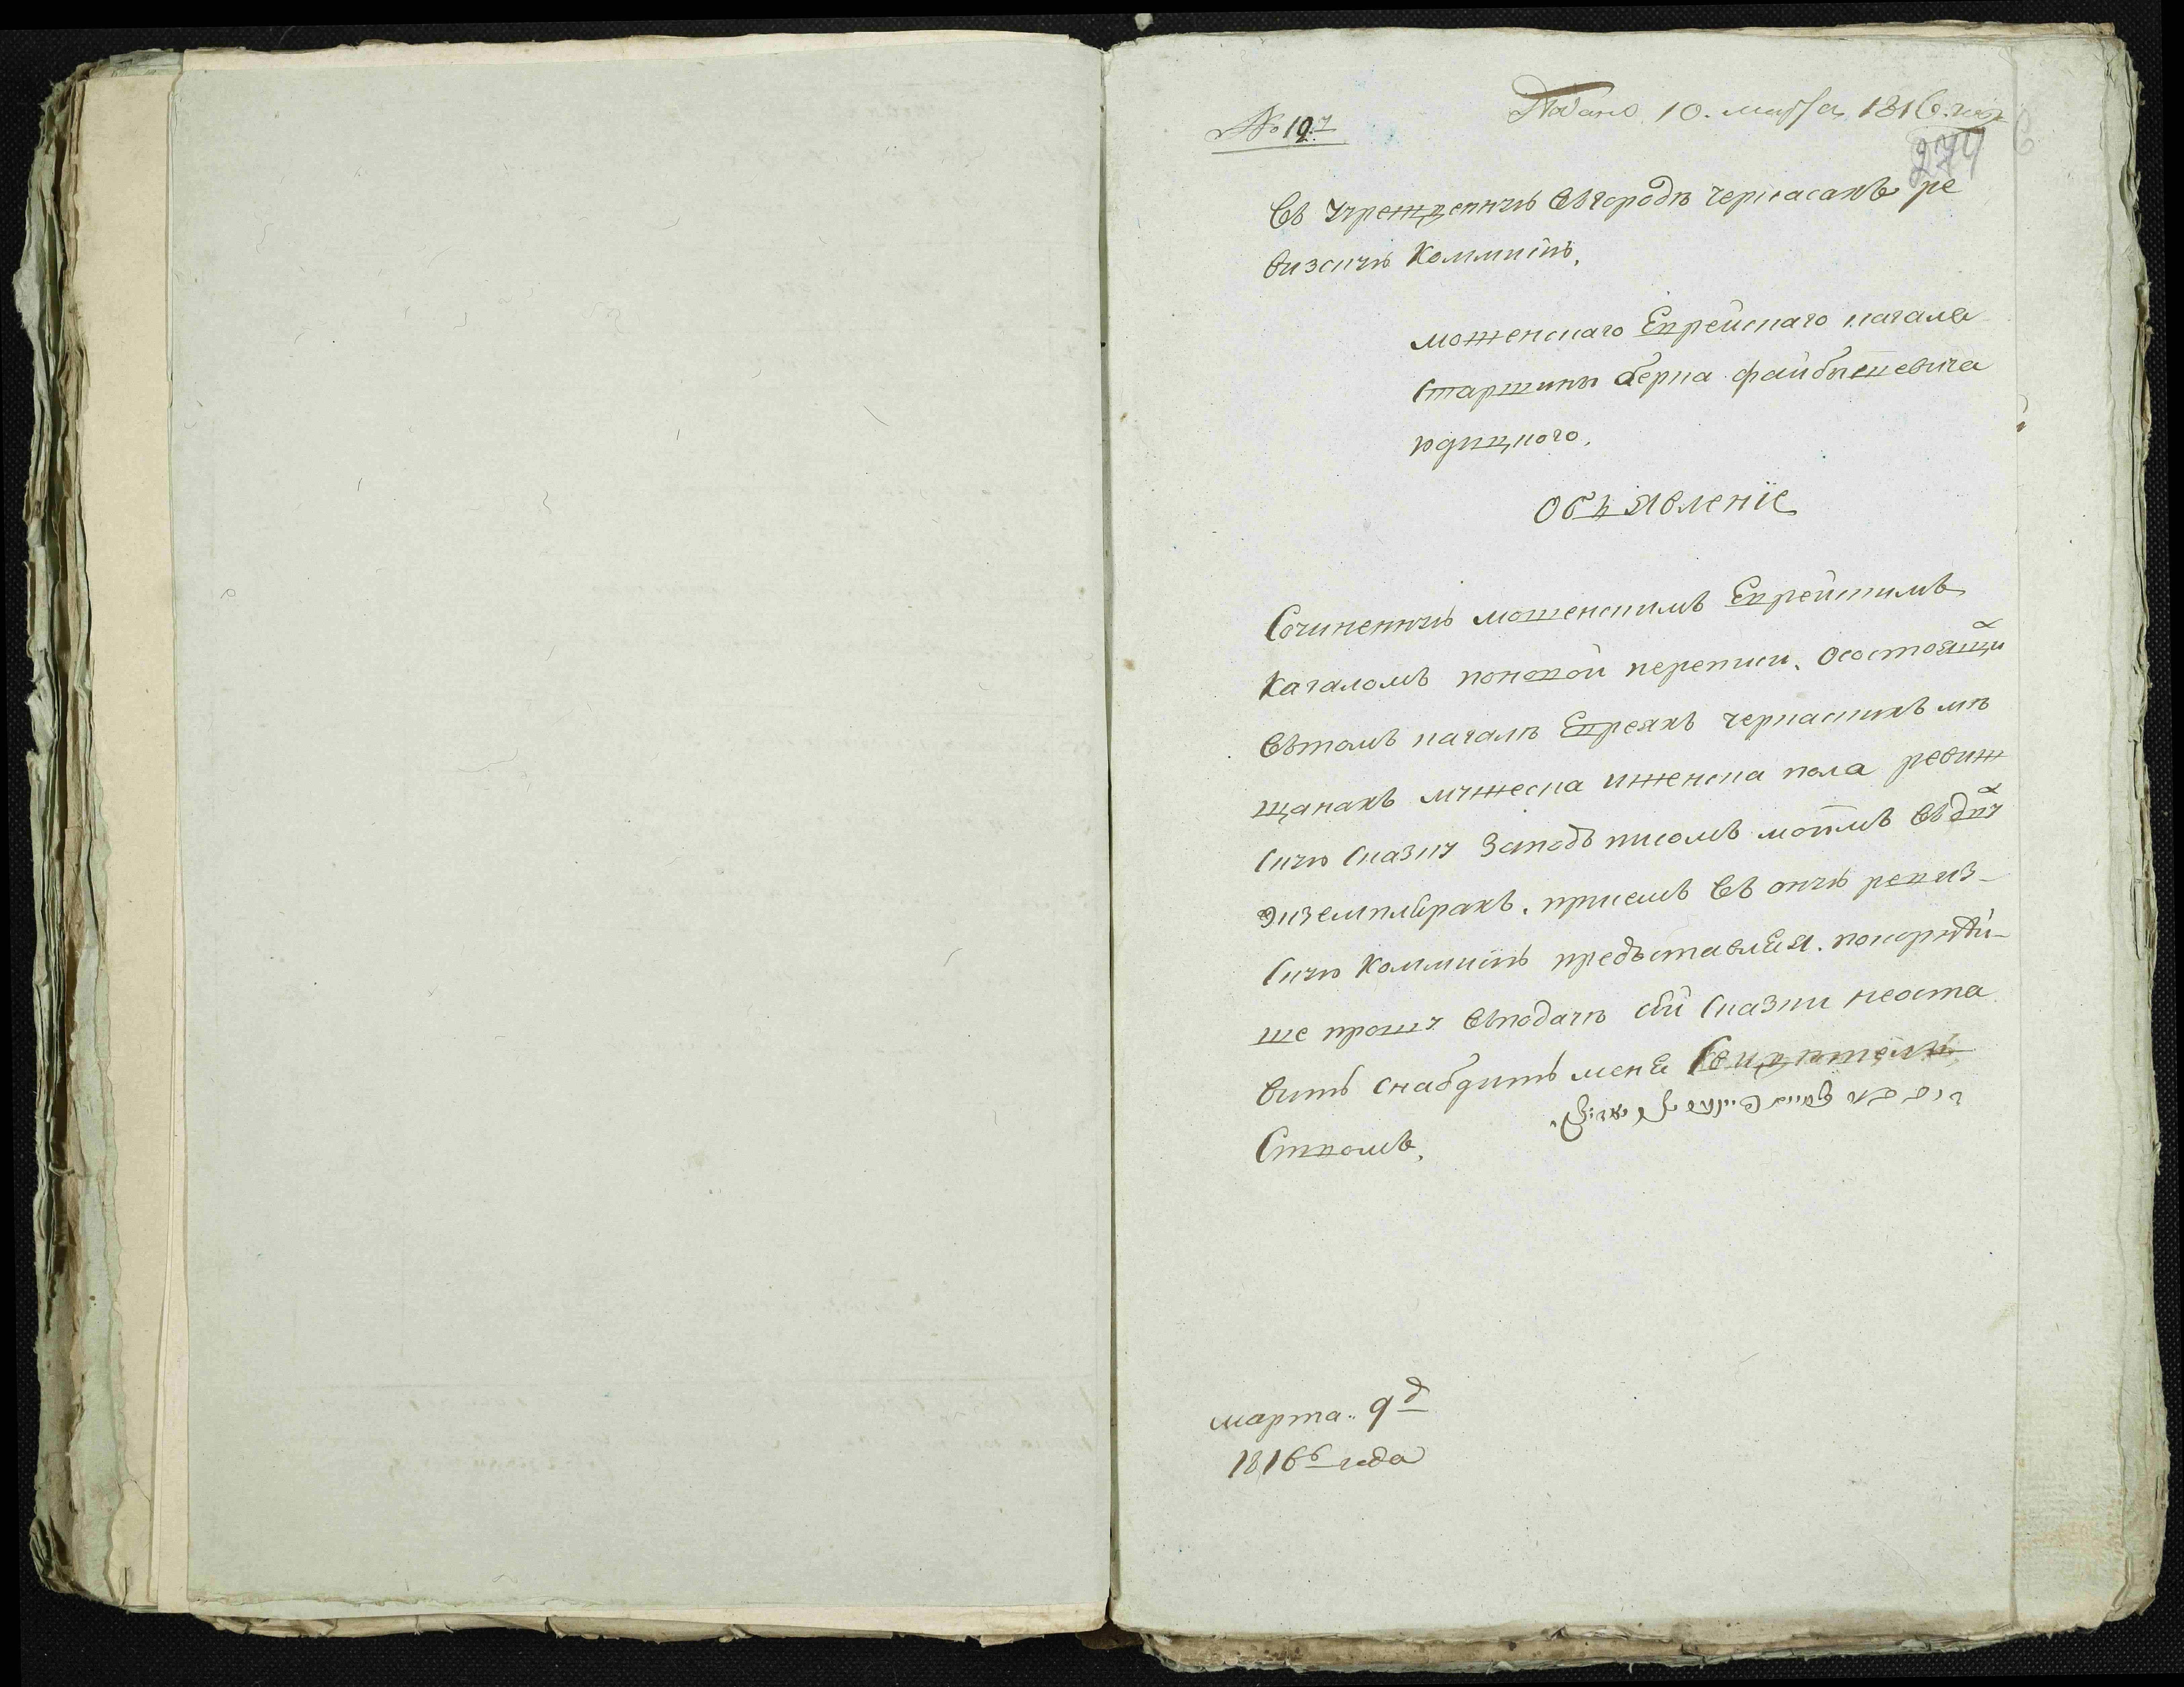 № 197
Подано 10. марта 1816. года
274
Въ учрежденную въ городѣ черкасахъ ре
визскую Коммисїю,
мошенскаго Еврейскаго кагала
старшины берка файбышевича
Объявленїе
Сочиненную мошенскимъ Еврейскимъ
Кагаломъ поновой переписи, осостоящи
вътомъ кагалѣ Евреяхъ черкаскихъ мѣ
щанахъ мужеска иженска пола ревиж
скую сказку Заподъписомъ моимъ въ дву
экземплярахъ. присемъ въ оную ревиз-
скую Коммисїю предъставляя. покорнѣй-
ше прошу въподачѣ сїй сказки неоста
вить снабдить меня свидѣтель
ствомъ,
марта. 9д
1816б года